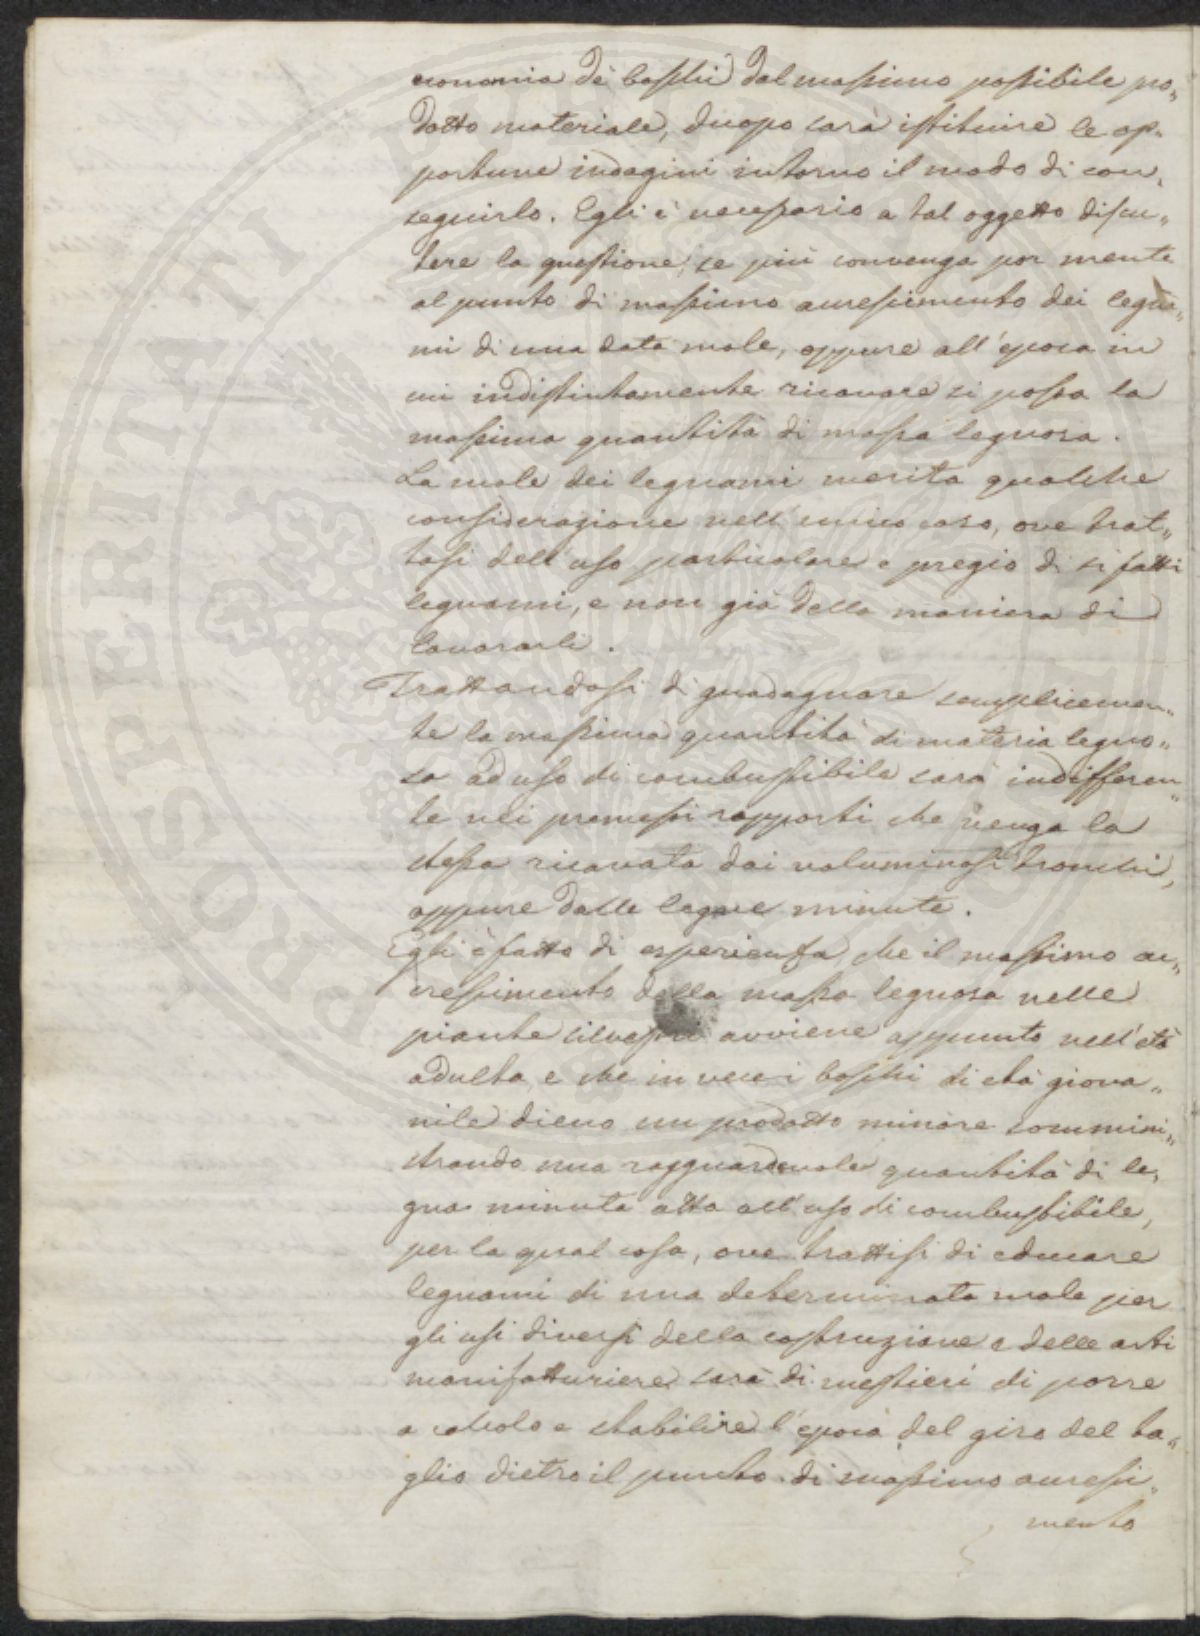 conomia de' boschi dal massimo possibile pro„
dotto materiale, duopo sarà istituire le op„
portune indagini intorno il modo di con„
seguirlo. Egli è necessario a tal oggetto discu„
tere la questione, se più convenga por mente
al punto di massimo accrescimento dei legna„
mi di una data mole, oppure all'epoca in
cui indistintamente ricavare si possa la
massima quantità di massa legnosa.
La mole dei legnami merita qualche
considerazione nell'unico caso, ove trat„
tasi dell'uso particolare e pregio di sifatti
legnami, e non già della maniera di
lavorarli.
Trattandosi di guadagnare semplicemen„
te la massima quantità di materia legno„
sa ad uso di combustibile sarà indifferen„
te nei premessi rapporti che venga la
stessa ricavata dai voluminosi tronchi,
oppure dalle legne minute.
Egli è fatto di esperienza che il massimo ac„
crescimento della massa legnosa nelle
piante silvestri avviene appunto nell'età
adulta, e che in vece i boschi di età giova„
nile dieno un prodotto minore sommini„
strando una ragguardevole quantità di le„
gna minuta atta all'uso di combustibile,
per la qual cosa, ove trattisi di educare
legnami di una determinata mole per
gli usi diversi della costruzione e delle arti
manifatturiere sarà di mestieri di porre
a calcolo e stabilire l'epoca del giro del ta„
glio dietro il punto di massimo accresci„
mento
PROSPERITATI PUBLICAE